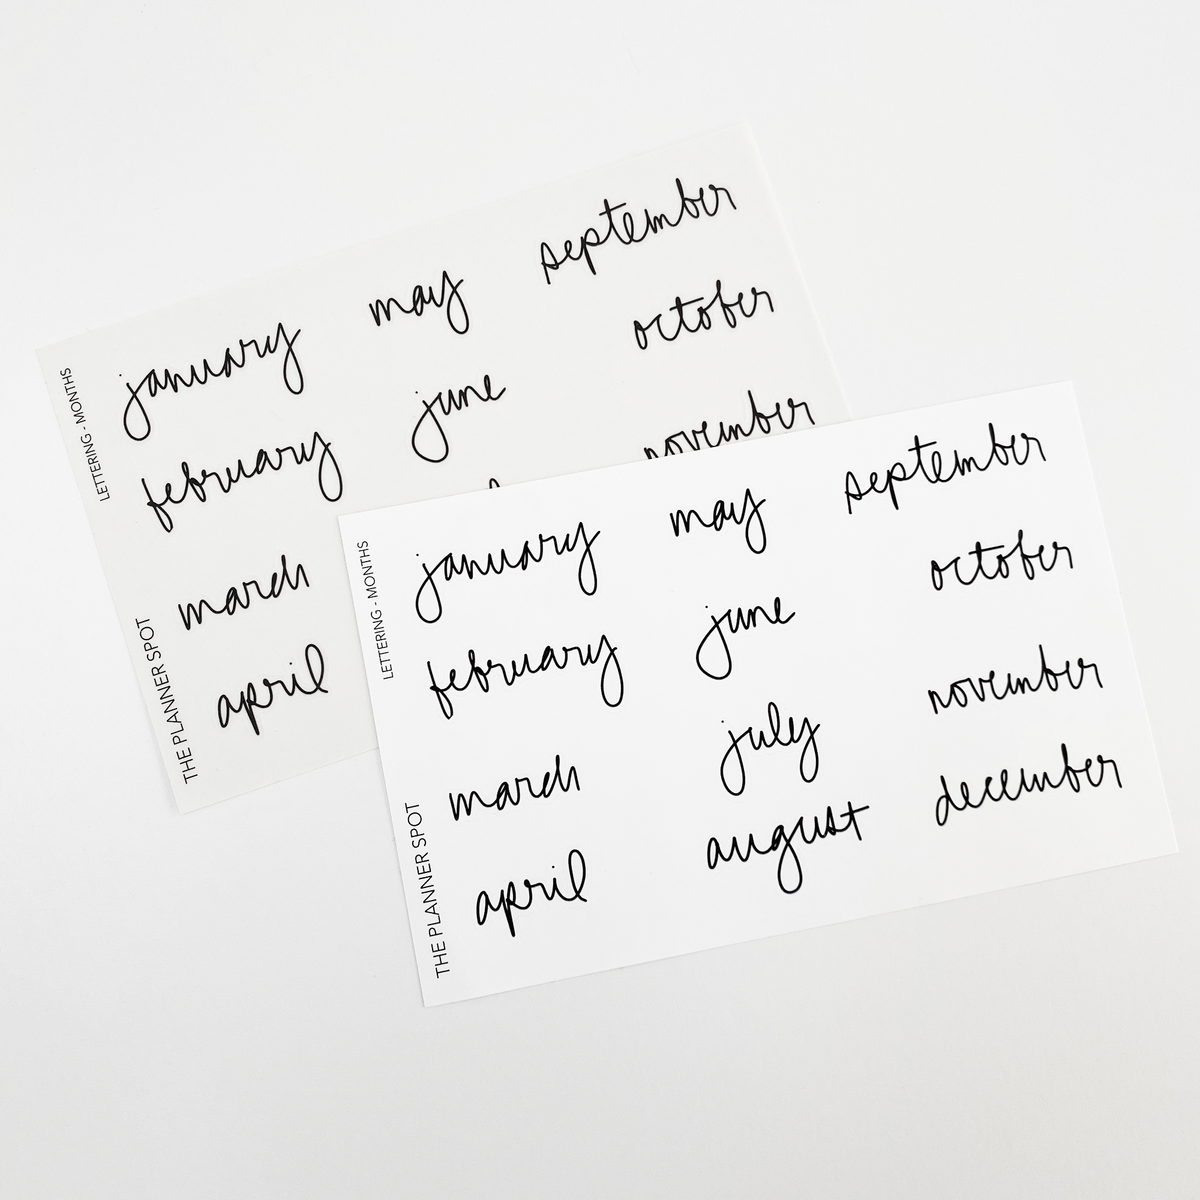 LETTERING - MONTHS
THE PLANNER SPOT
january
february
march
april
may
june
september
october
november
LETTERING - MONTHS
THE PLANNER SPOT
january
february
march
april
may
june
july
august
september
october
november
december